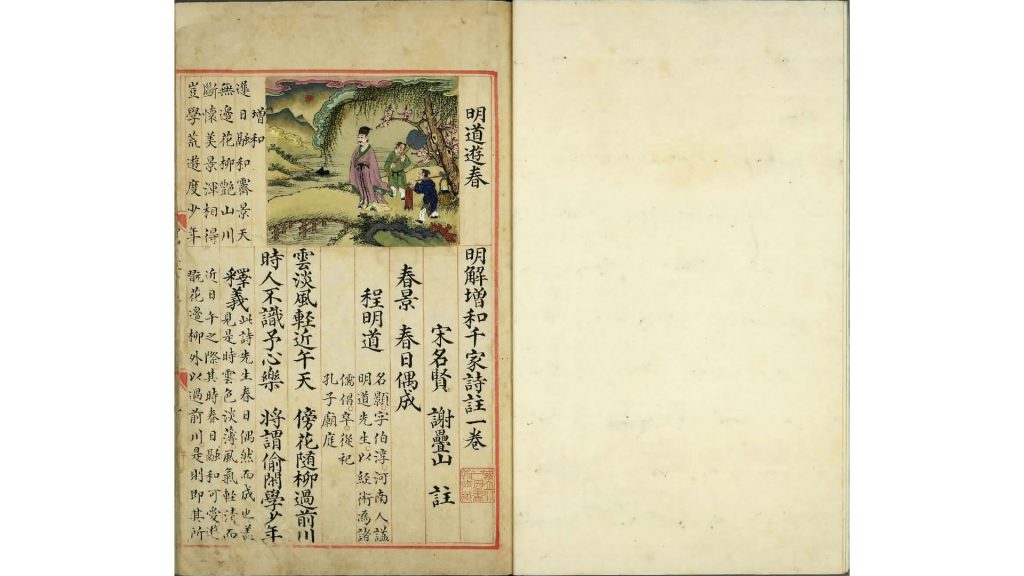 明道遊春
明解增和千家詩註一卷
宋名賢 謝疊山 註
春景 春日偶成
程明道
名顥字伯淳河南人謚
明道先生以經術為諸
儒倡卒從祀
孔子廟庭
雲淡風輕近午天 傍花隨柳過前川
時人不識予心樂 將謂偷閒學少年
增和
遲日融和霽景天
無邊花柳艷山川
斷懷美景渾相得
豈學荒遊度少年
釋義
此詩先生春日偶然而成也蓋
見是時雲色淡薄風氣輕清而
近日午之際其時春日融和可愛遊
翫花邊柳外以過前川是則即其所